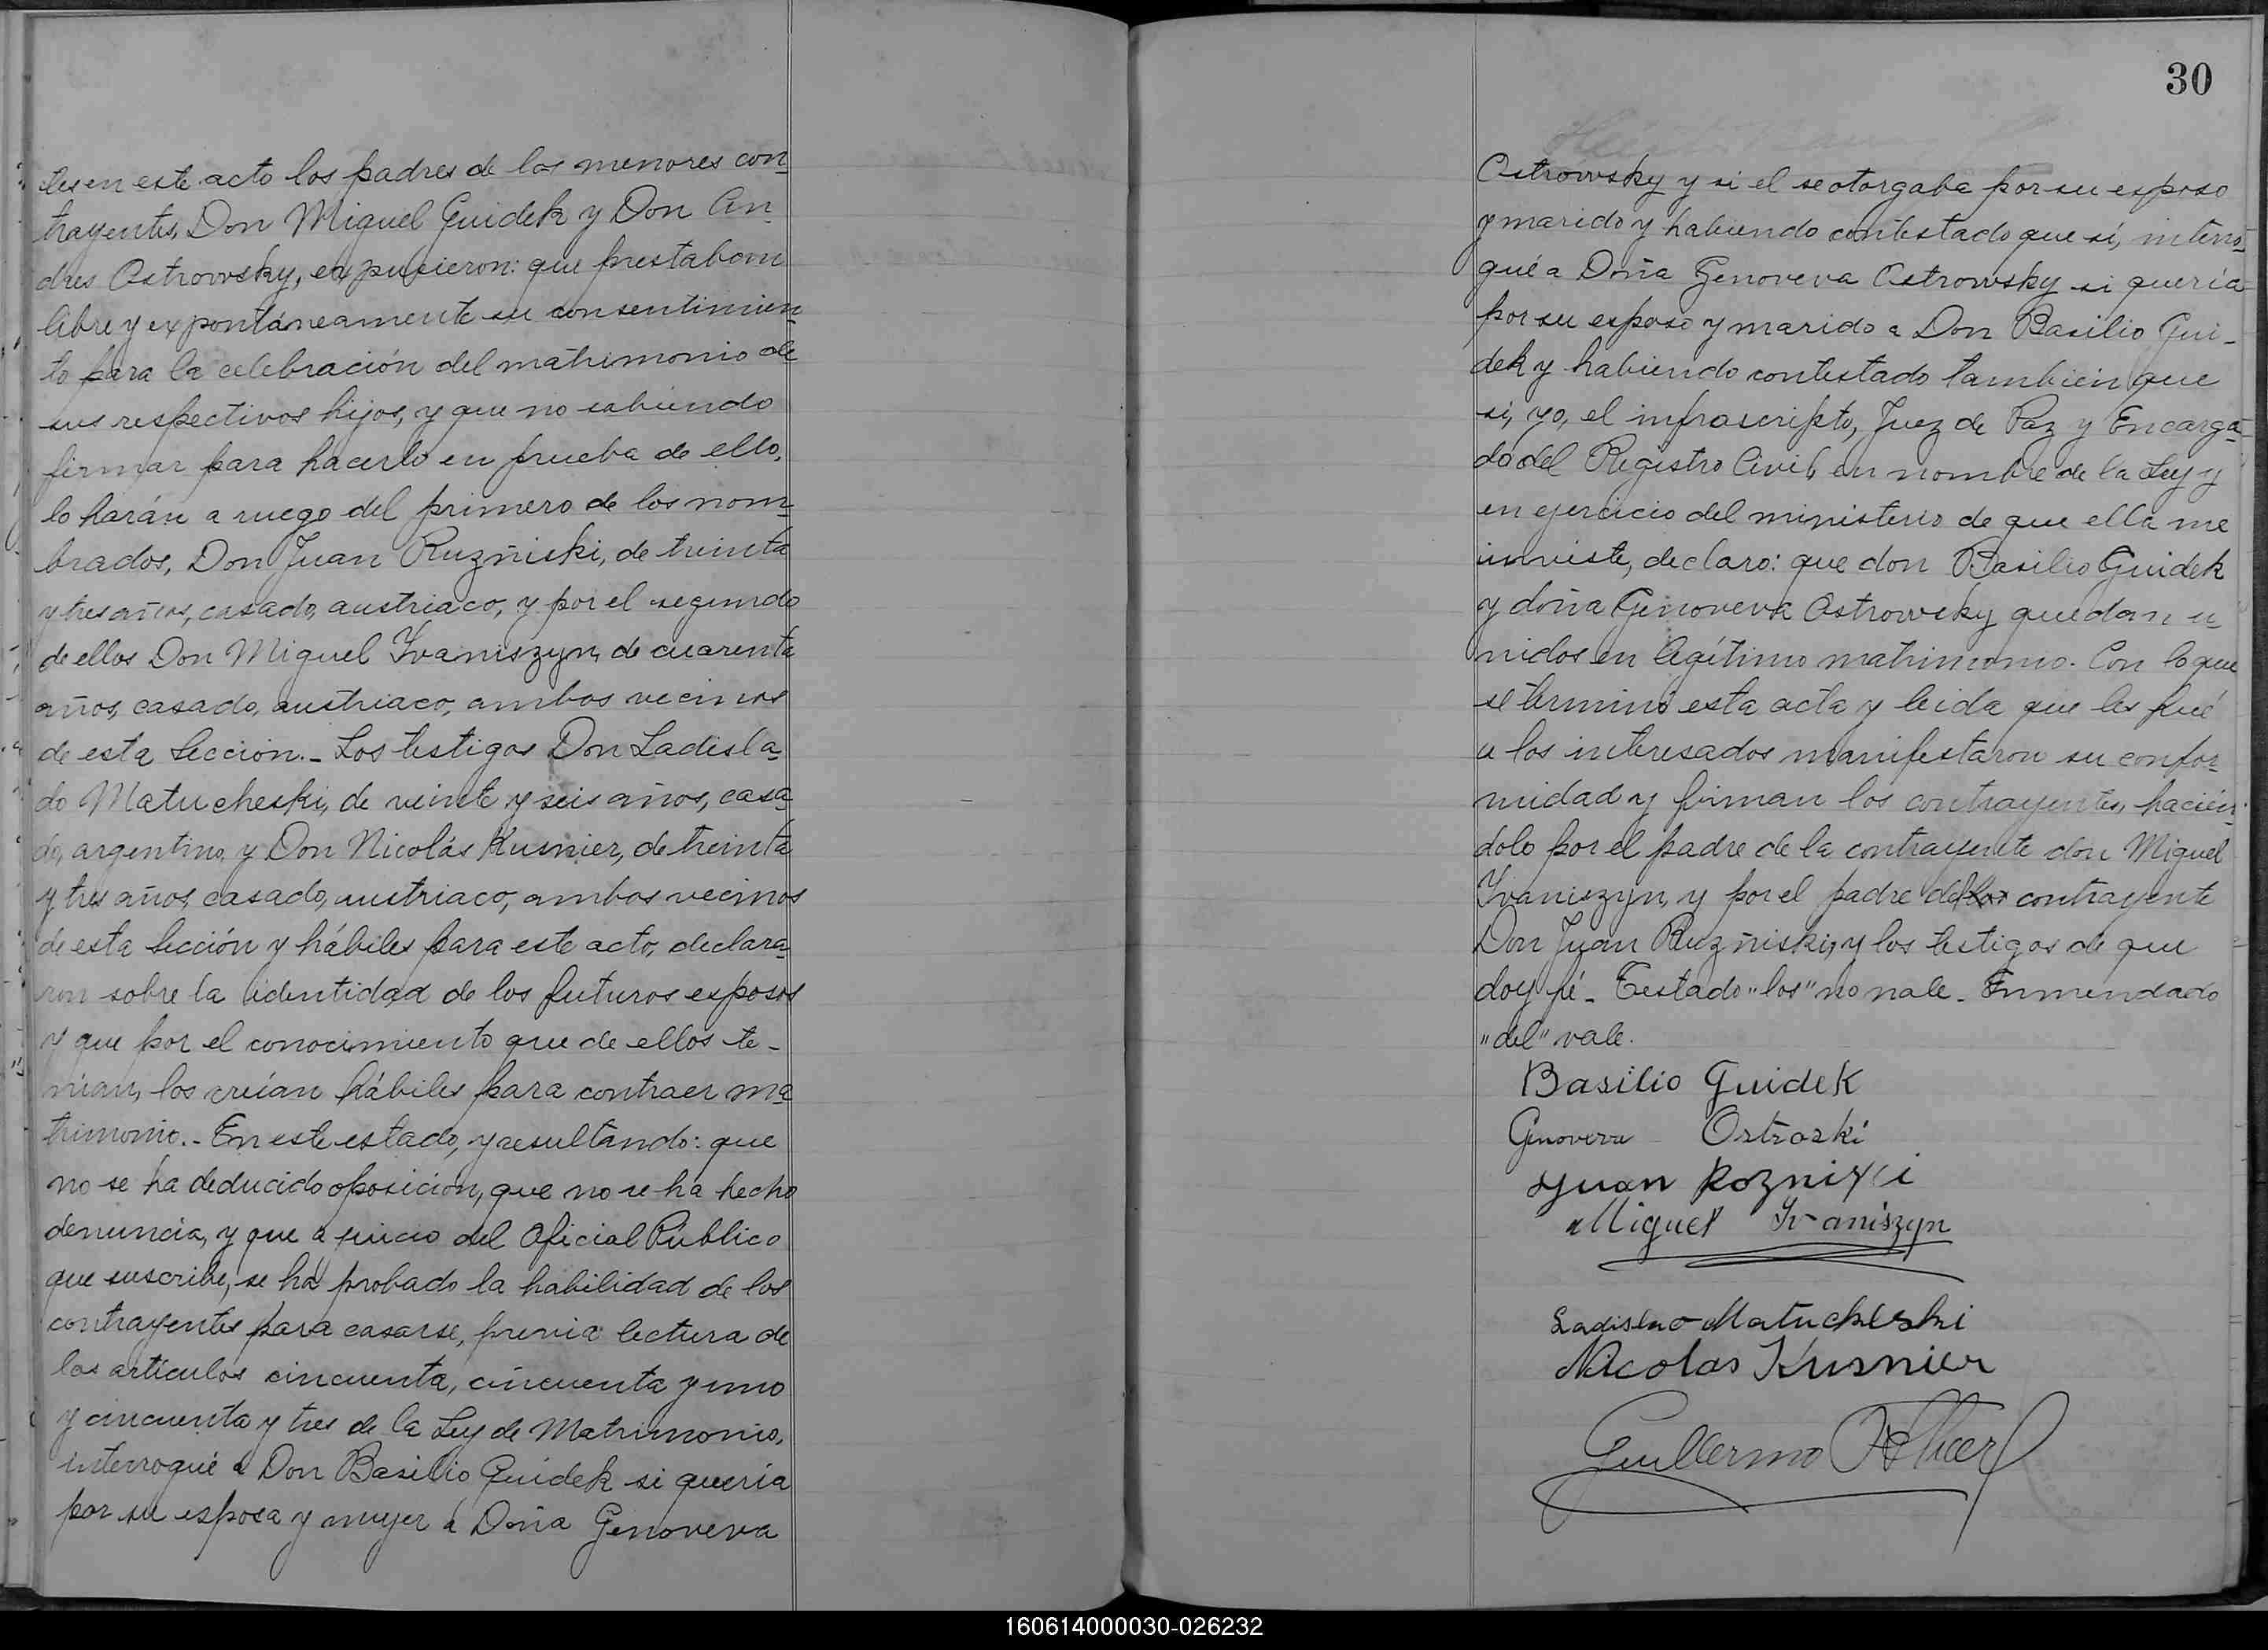 tes en este acto los padres de los menores con-
trayentes, Don Miguel Guidek y Don An-
dres Ostrowsky, expusieron: que prestaban
libre y expontáneamente su consentimien-
to para la celebración del matrimonio de
sus respectivos hijos, y que no sabiendo
firmar para hacerlo en prueba de ello,
lo harán a ruego del primero de los nom-
brados, Don Juan Ruzñiski, de treinta
y tres años, casado, austriaco, y por el segundo
de ellos Don Miguel Yvaniszyn, de cuarenta
años, casado, austriaco, ambos vecinos
de esta Sección.- Los testigos Don Ladisla-
do Matucheski, de veinte y seis años, casa-
do, argentino, y Don Nicolás Kusnier, de treinta
y tres años, casado, austriaco, ambos vecinos
de esta Sección y hábiles para este acto, declara-
ron sobre la identidad de los futuros esposos
y que por el conocimiento que de ellos te-
nían, los creían hábiles para contraer ma-
trimonio.- En este estado, y resultando: que
no se ha deducido oposición, que no se ha hecho
denuncia, y que a juicio del Oficial Público
que suscribe, se há probado la habilidad de los
contrayentes para casarse, previa lectura de
los artículos cincuenta, cincuenta y uno
y cincuenta y tres de la Ley de Matrimonio,
interrogué a Don Basilio Guidek si quería
por su esposa y mujer á Doña Genoveva
30
Ostrowsky y si el se otorgaba por su esposo
y marido y habiendo contestado que sí, interro-
gué a Doña Genoveva Ostrowsky si quería
por su esposo y marido a Don Basilio Gui-
dek y habiendo contestado tambien que
si, yo, el infrascripto, Juez de Paz y Encarga-
do del Registro Civil, en nombre de la Ley y
en ejercicio del ministerio de que ella me
inviste, declaro: que don Basilio Guidek
y doña Genoveva Ostrowsky quedan u-
nidos en legítimo matrimonio. Con lo que
se terminó esta acta y leida que les fué
a los interesados manifestaron su confor-
midad y firman los contrayentes, hacién-
dolo por el padre de la contrayente don Miguel
Yvaniszyn, y por el padre del los contrayente
Don Juan Ruzñiski, y los testigos de que
doy fé - Testado "los" no vale - Enmendado
"del" vale.
Basilio Guidek
Genoveva Ostroski
Juan
Miguel Yvaniszyn
Ladislao Matucheski
Nicolas Kusnier
Guillermo
160614000030-026232